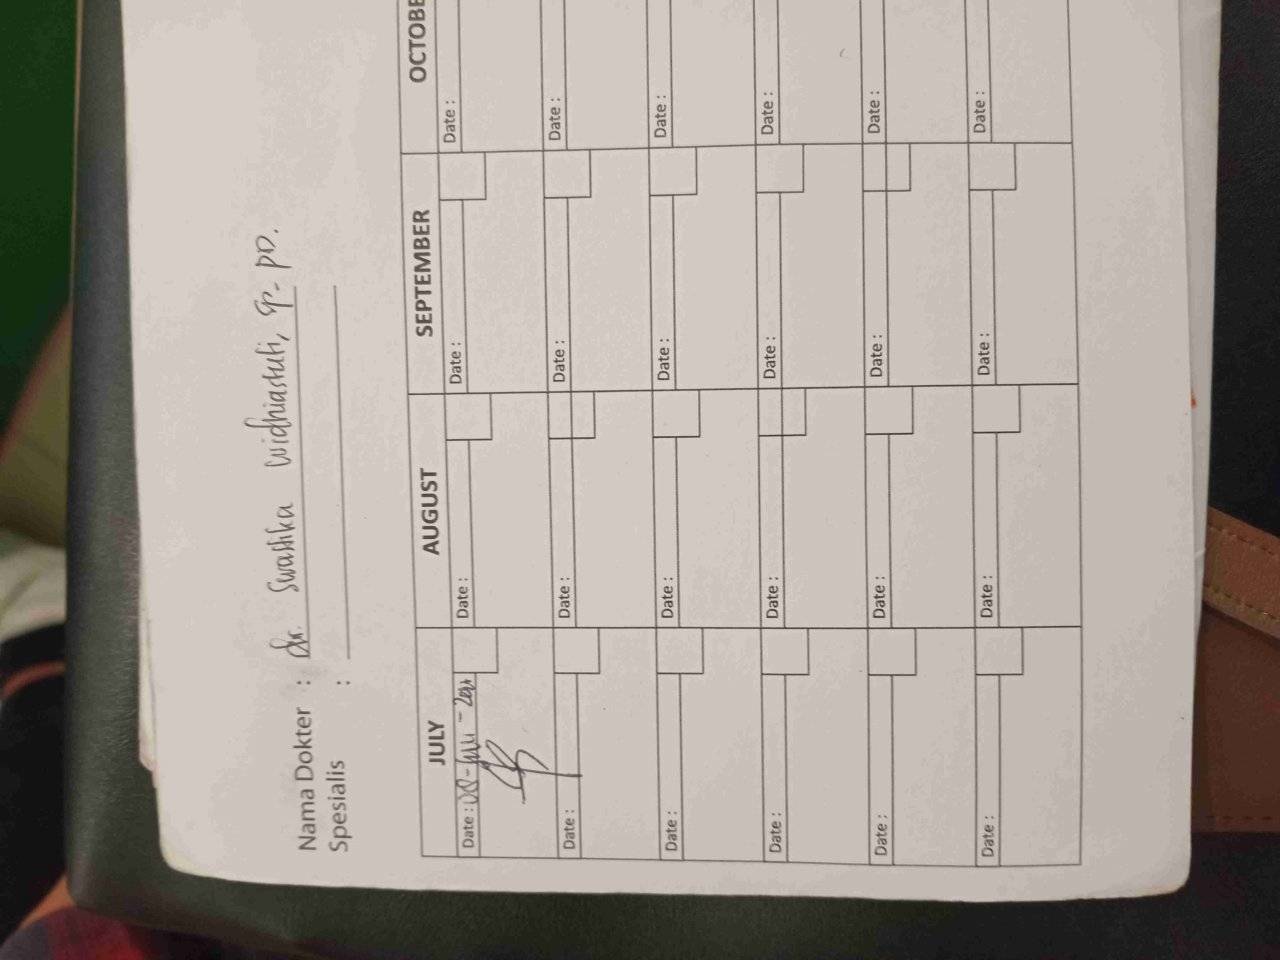 Nama Dokter : dr. Swastika Widhiastuti, Sp-PD.
Spesialis :
JULY AUGUST SEPTEMBER OCTOBE
Date : Date : Date : Date :
Date : Date : Date : Date :
Date : Date : Date : Date :
Date : Date : Date : Date :
Date : Date : Date : Date :
Date : Date : Date : Date :